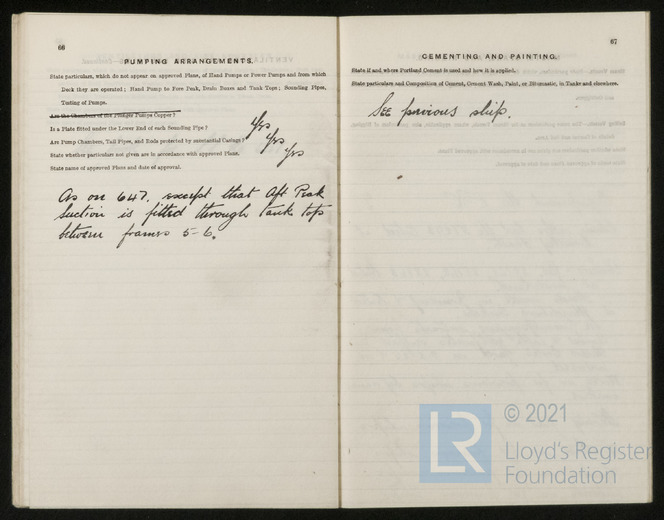 66
PUMPING ARRANGEMENTS.
State particulars, which do not appear on approved Plans, of Hand Pumps or Power Pumps and from which
Deck they are operated; Hand Pump to Fore Peak, Drain Boxes and Tank Tops; Sounding Pipes,
Testing of Pumps.
Are the Chambers of the Plunger Pumps Copper?
Is a Plate fitted under the Lower End of each Sounding Pipe? Yes
Are Pump Chambers, Tail Pipes, and Rods protected by substantial Casings? Yes
State whether particulars not given are in accordance with approved Plans. Yes
State name of approved Plans and date of approval.
As on 647, except that Aft Peak
Suction is fitted through tank top
between frames 5-6.
67
CEMENTING AND PAINTING.
State if and where Portland Cement is used and how it is applied.
State particulars and Composition of Cement, Cement Wash, Paint, or Bitumastic, in Tanks and elsewhere.
See previous ship.
LR
© 2021
Lloyd's Register
Foundation